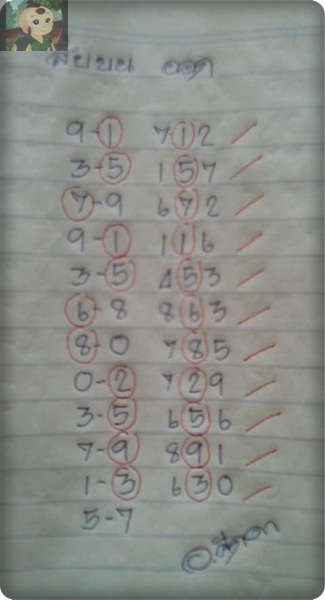 สิบบน ออก
9-1 712
3-5 157
7-9 672
9-1 116
3-5 453
6-8 863
8-0 785
0-2 729
3-5 656
7-9 891
1-3 630
5-7